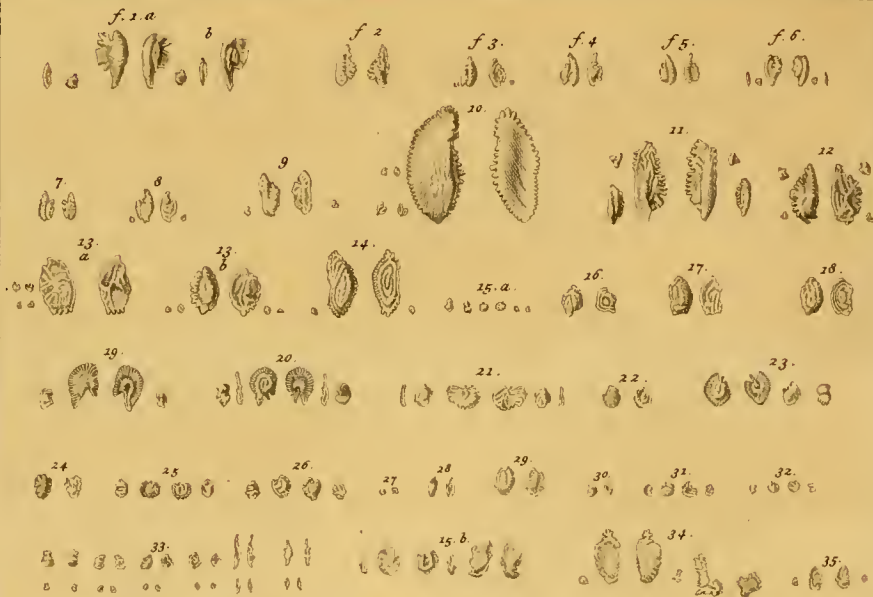 f. 1. a b f 2 f 3. f. 4 f 5. f. 6.
7. 8 9 10. 11. 12
13. a 13. b 14. 15. a 16. 17. 18.
19. 20. 21. 22. 23.
24 25 26. 27 28 29. 30. 31. 32.
33. 15. b. 34. 35.